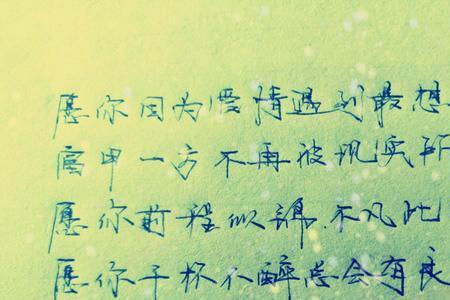 愿你因为爱情遇到最想
富甲一方不再被现实所
愿你前程似锦.不凡此
愿你千杯不醉总会有良